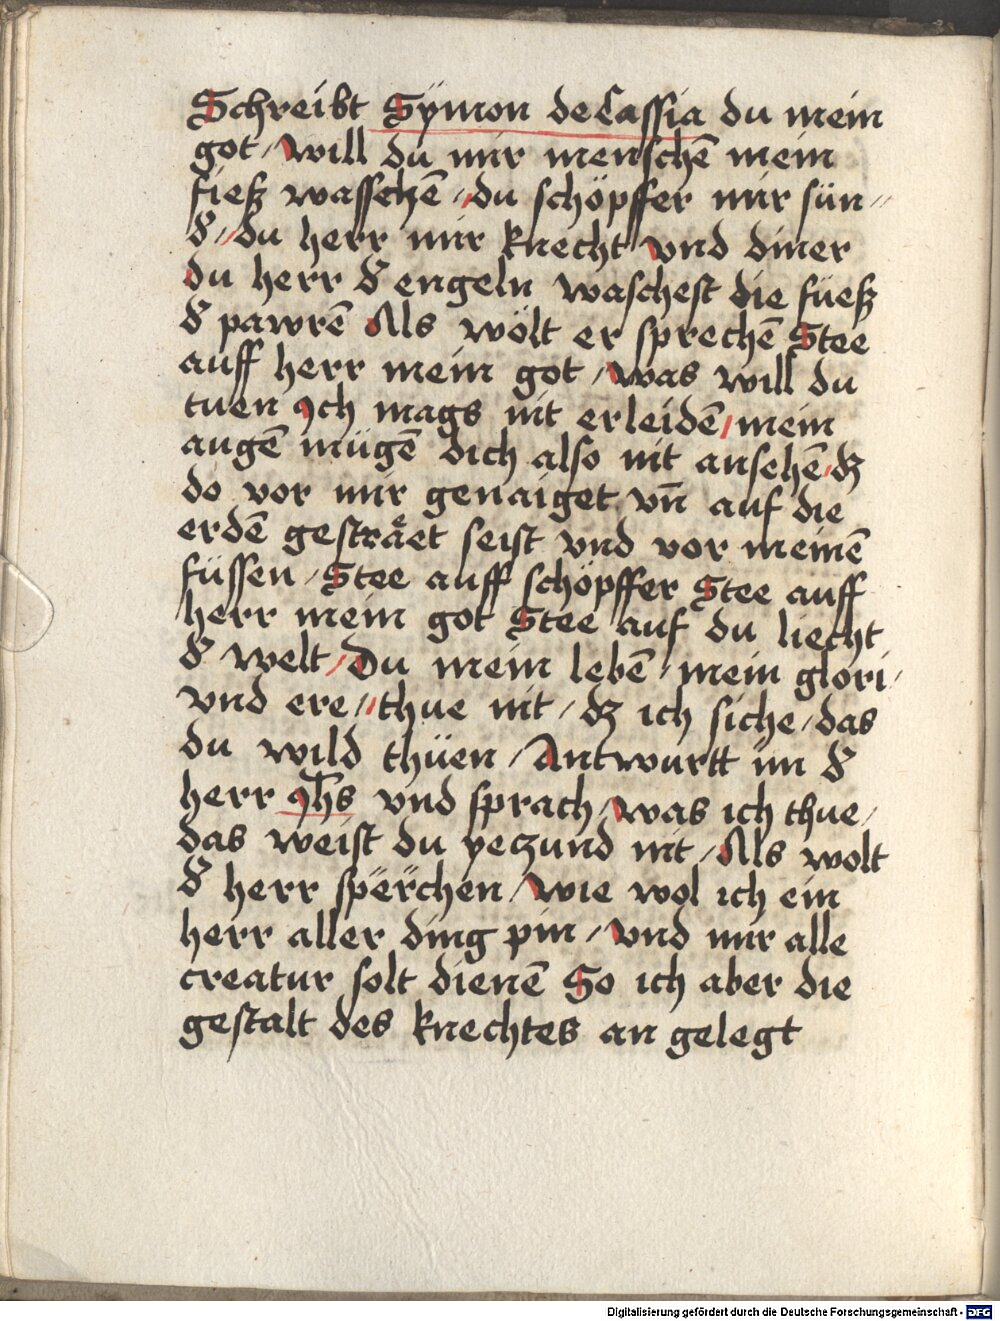 Schreibt Sÿmon de Cassia du mein
got / will du mir menschē mein
fieß wasschē // du schöpffer mir sün //
đ // du herr mir knecht vnd diner
du herr đ engeln waschest die füeß
đ pawrē Als wölt er sprechē Stee
auff herr mein got / was will du
tuen Ich mags nit erleidē / mein
augē mügē dich also nit ansehē / dʒ
do vor mir genaiget vn̄ auf die
erdē gesträet seist vnd vor meinē
füssen / Stee auff schöpffer Stee auff
herr mein got Stee auf du liecht
đ welt / Du mein lebē / mein glori /
vnd ere // thue nit / dʒ ich siche / das
du wild thüen / Antwurtt im đ
herr Ih̄s vnd sprach / was ich thue /
das weist du yeczund nit / Als wolt
đ herr sperchen / wie wol ich ein
herr aller ding pin // vnd mir alle
creatur solt dienē So ich aber die
gestalt des knechtes an gelegt
Digitalisierung gefördert durch die Deutsche Forschungsgemeinschaft - DFG